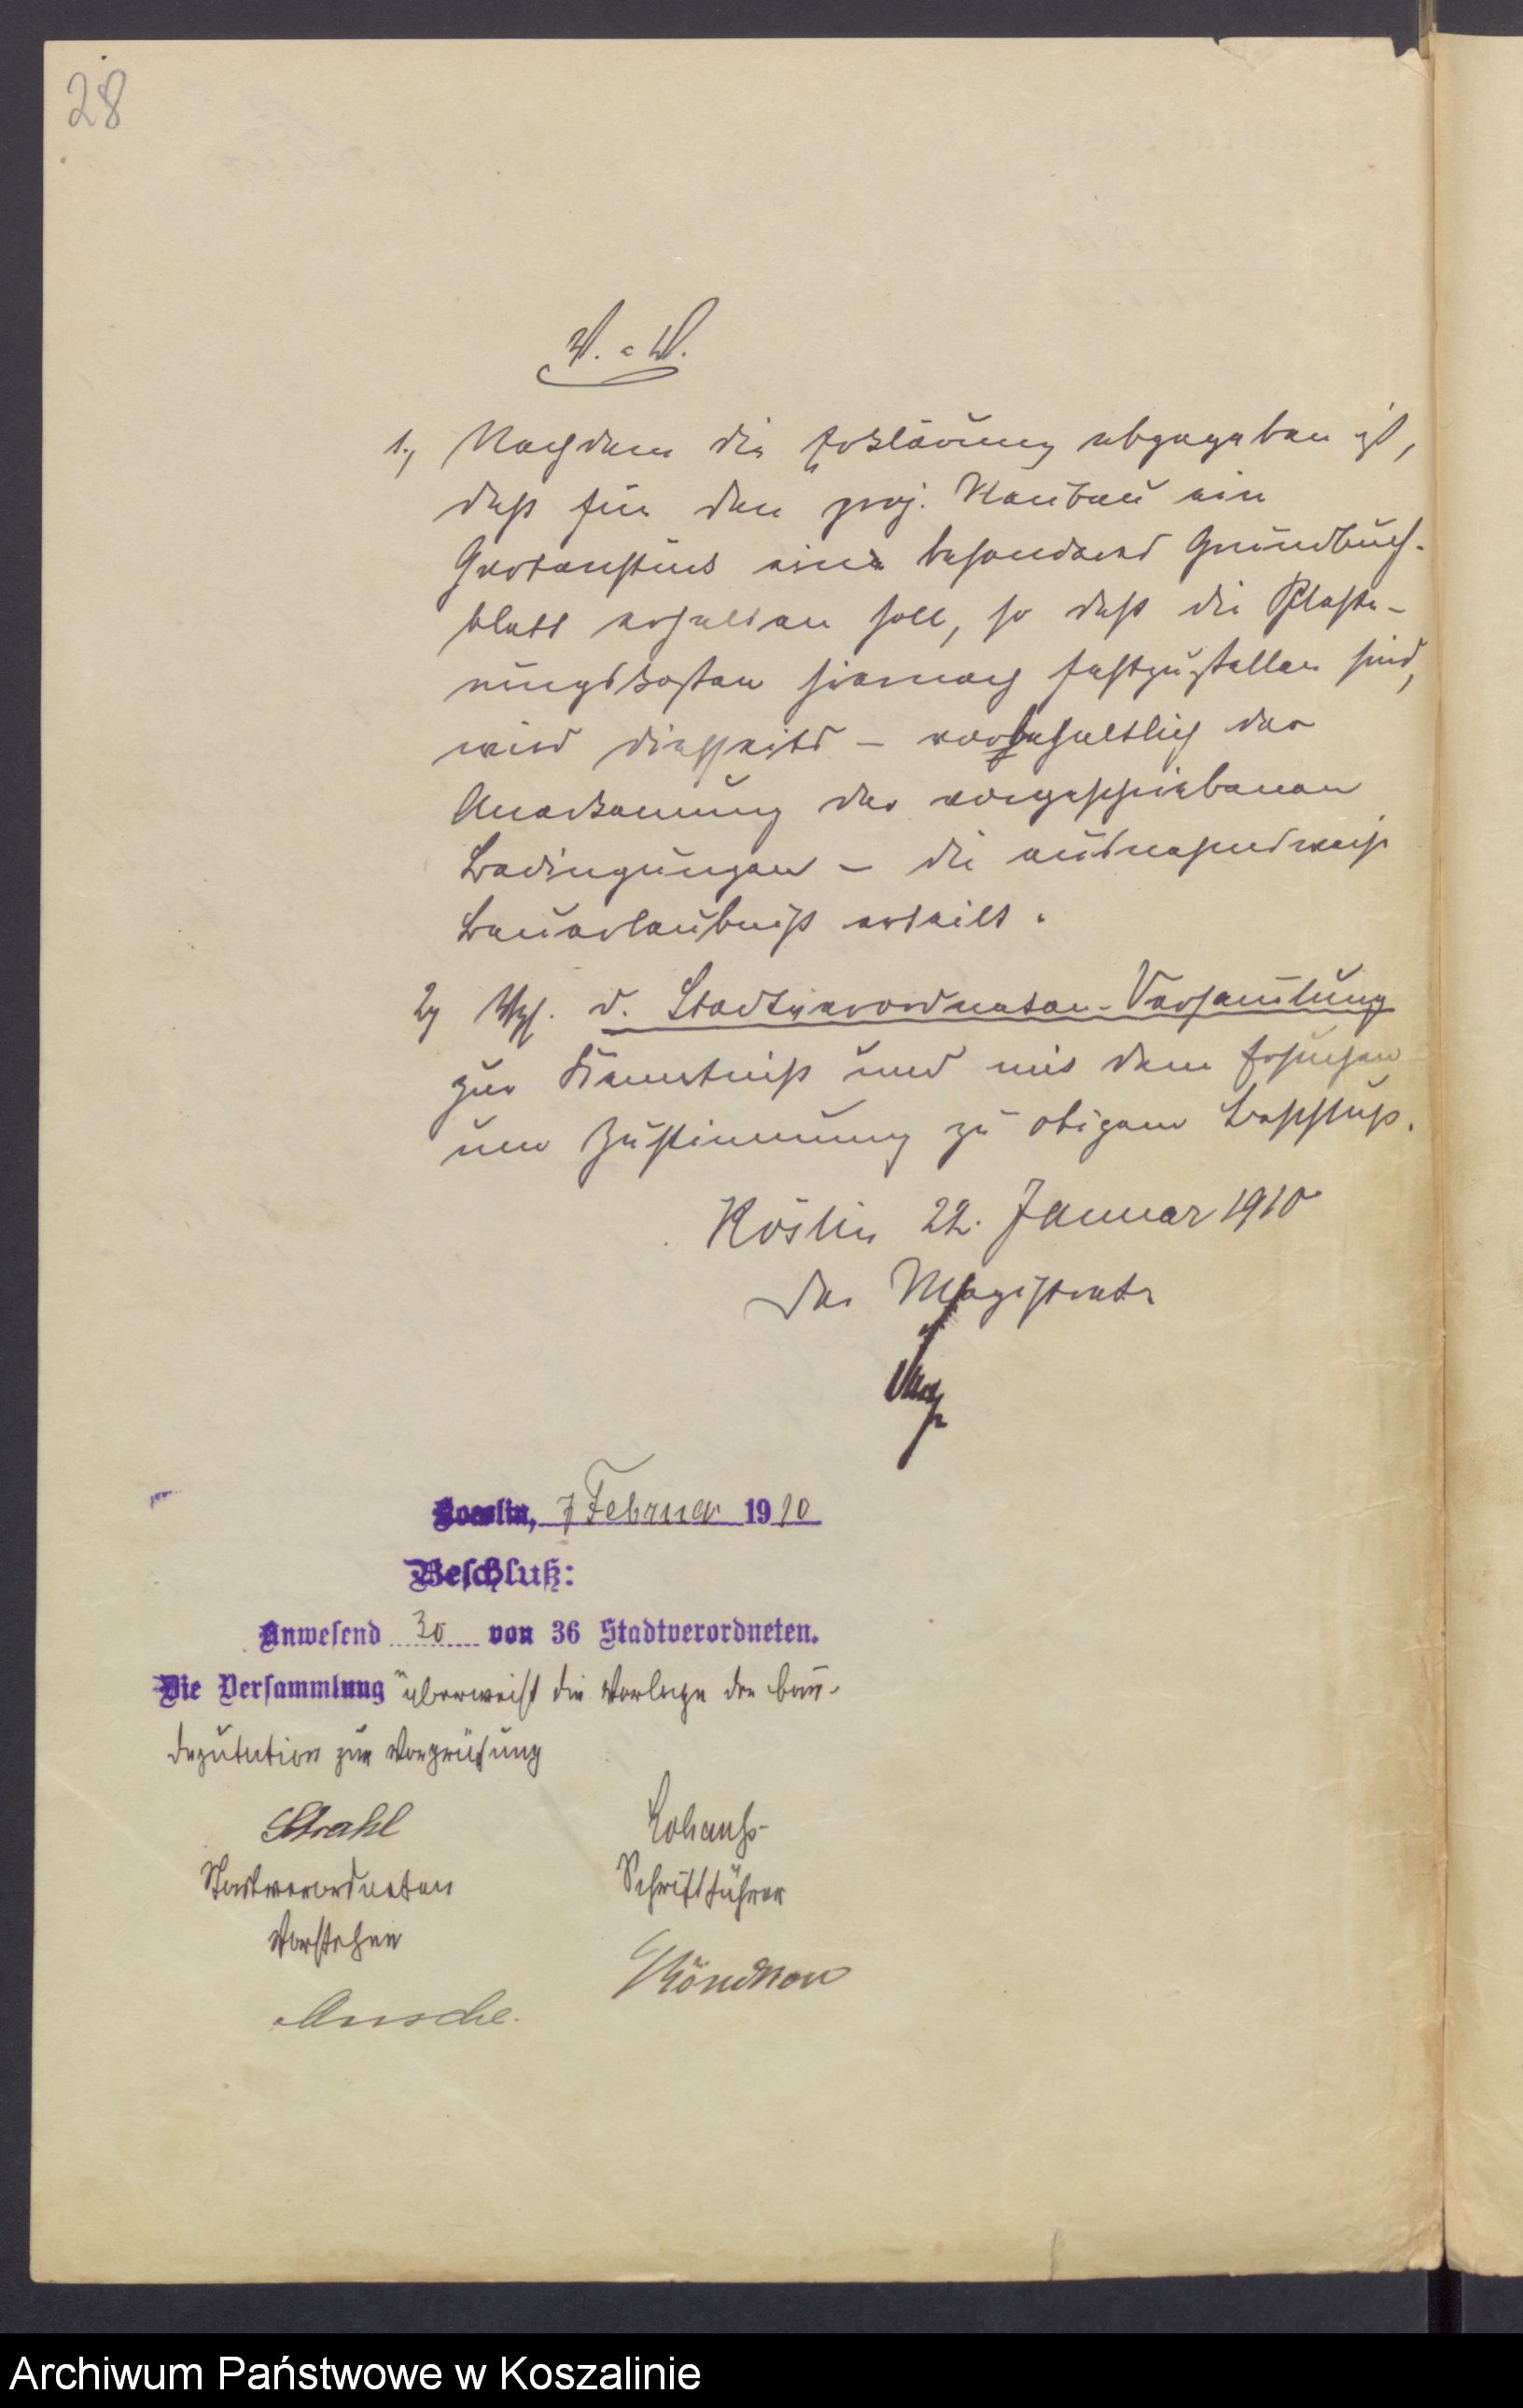 28
1., Nachdem die Erklärung abgegeben ist,
daß für den proj. Neubau ein
Gartenstück ein besonderes Grundbuch-
blatt erhalten soll, so daß die Pflaste-
rungskosten hiernach festzustellen sind,
wird diesseits – vorbehaltlich der
Anerkennung der vorgeschriebenen
Bedingungen – die ausnahmsweise
Bauerlaubniß erteilt.
2) d. Stadtverordneten-Versamlung
zur Kenntniß und mit dem Ersuchen
um Zustimmung zu obigem Beschluß.
Köslin 22. Januar 1910
Der Magistrat
Koeslin, 7 Februar 1910
Beschluß:
Anwesend 30 von 36 Stadtverordneten.
Die Versammlung überweist die Vorlage der Bau-
deputation zur Vorprüfung
Strahl
Stadtverordneten
Vorsteher
Schriftführer
Archiwum Państwowe w Koszalinie